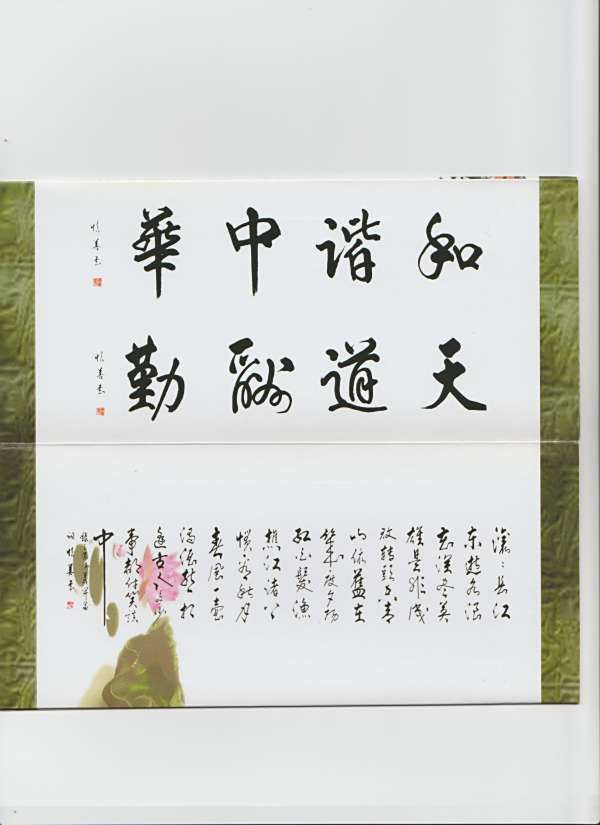 和谐中華
天道酬勤
滚滚长江
东逝水浪
花淘尽英
雄是非成
败转头空青
山依舊在
几度夕阳
红白髮渔
樵江渚上
惯看秋月
春风一壶
浊酒喜相
逢古今多少
事都付笑谈
中